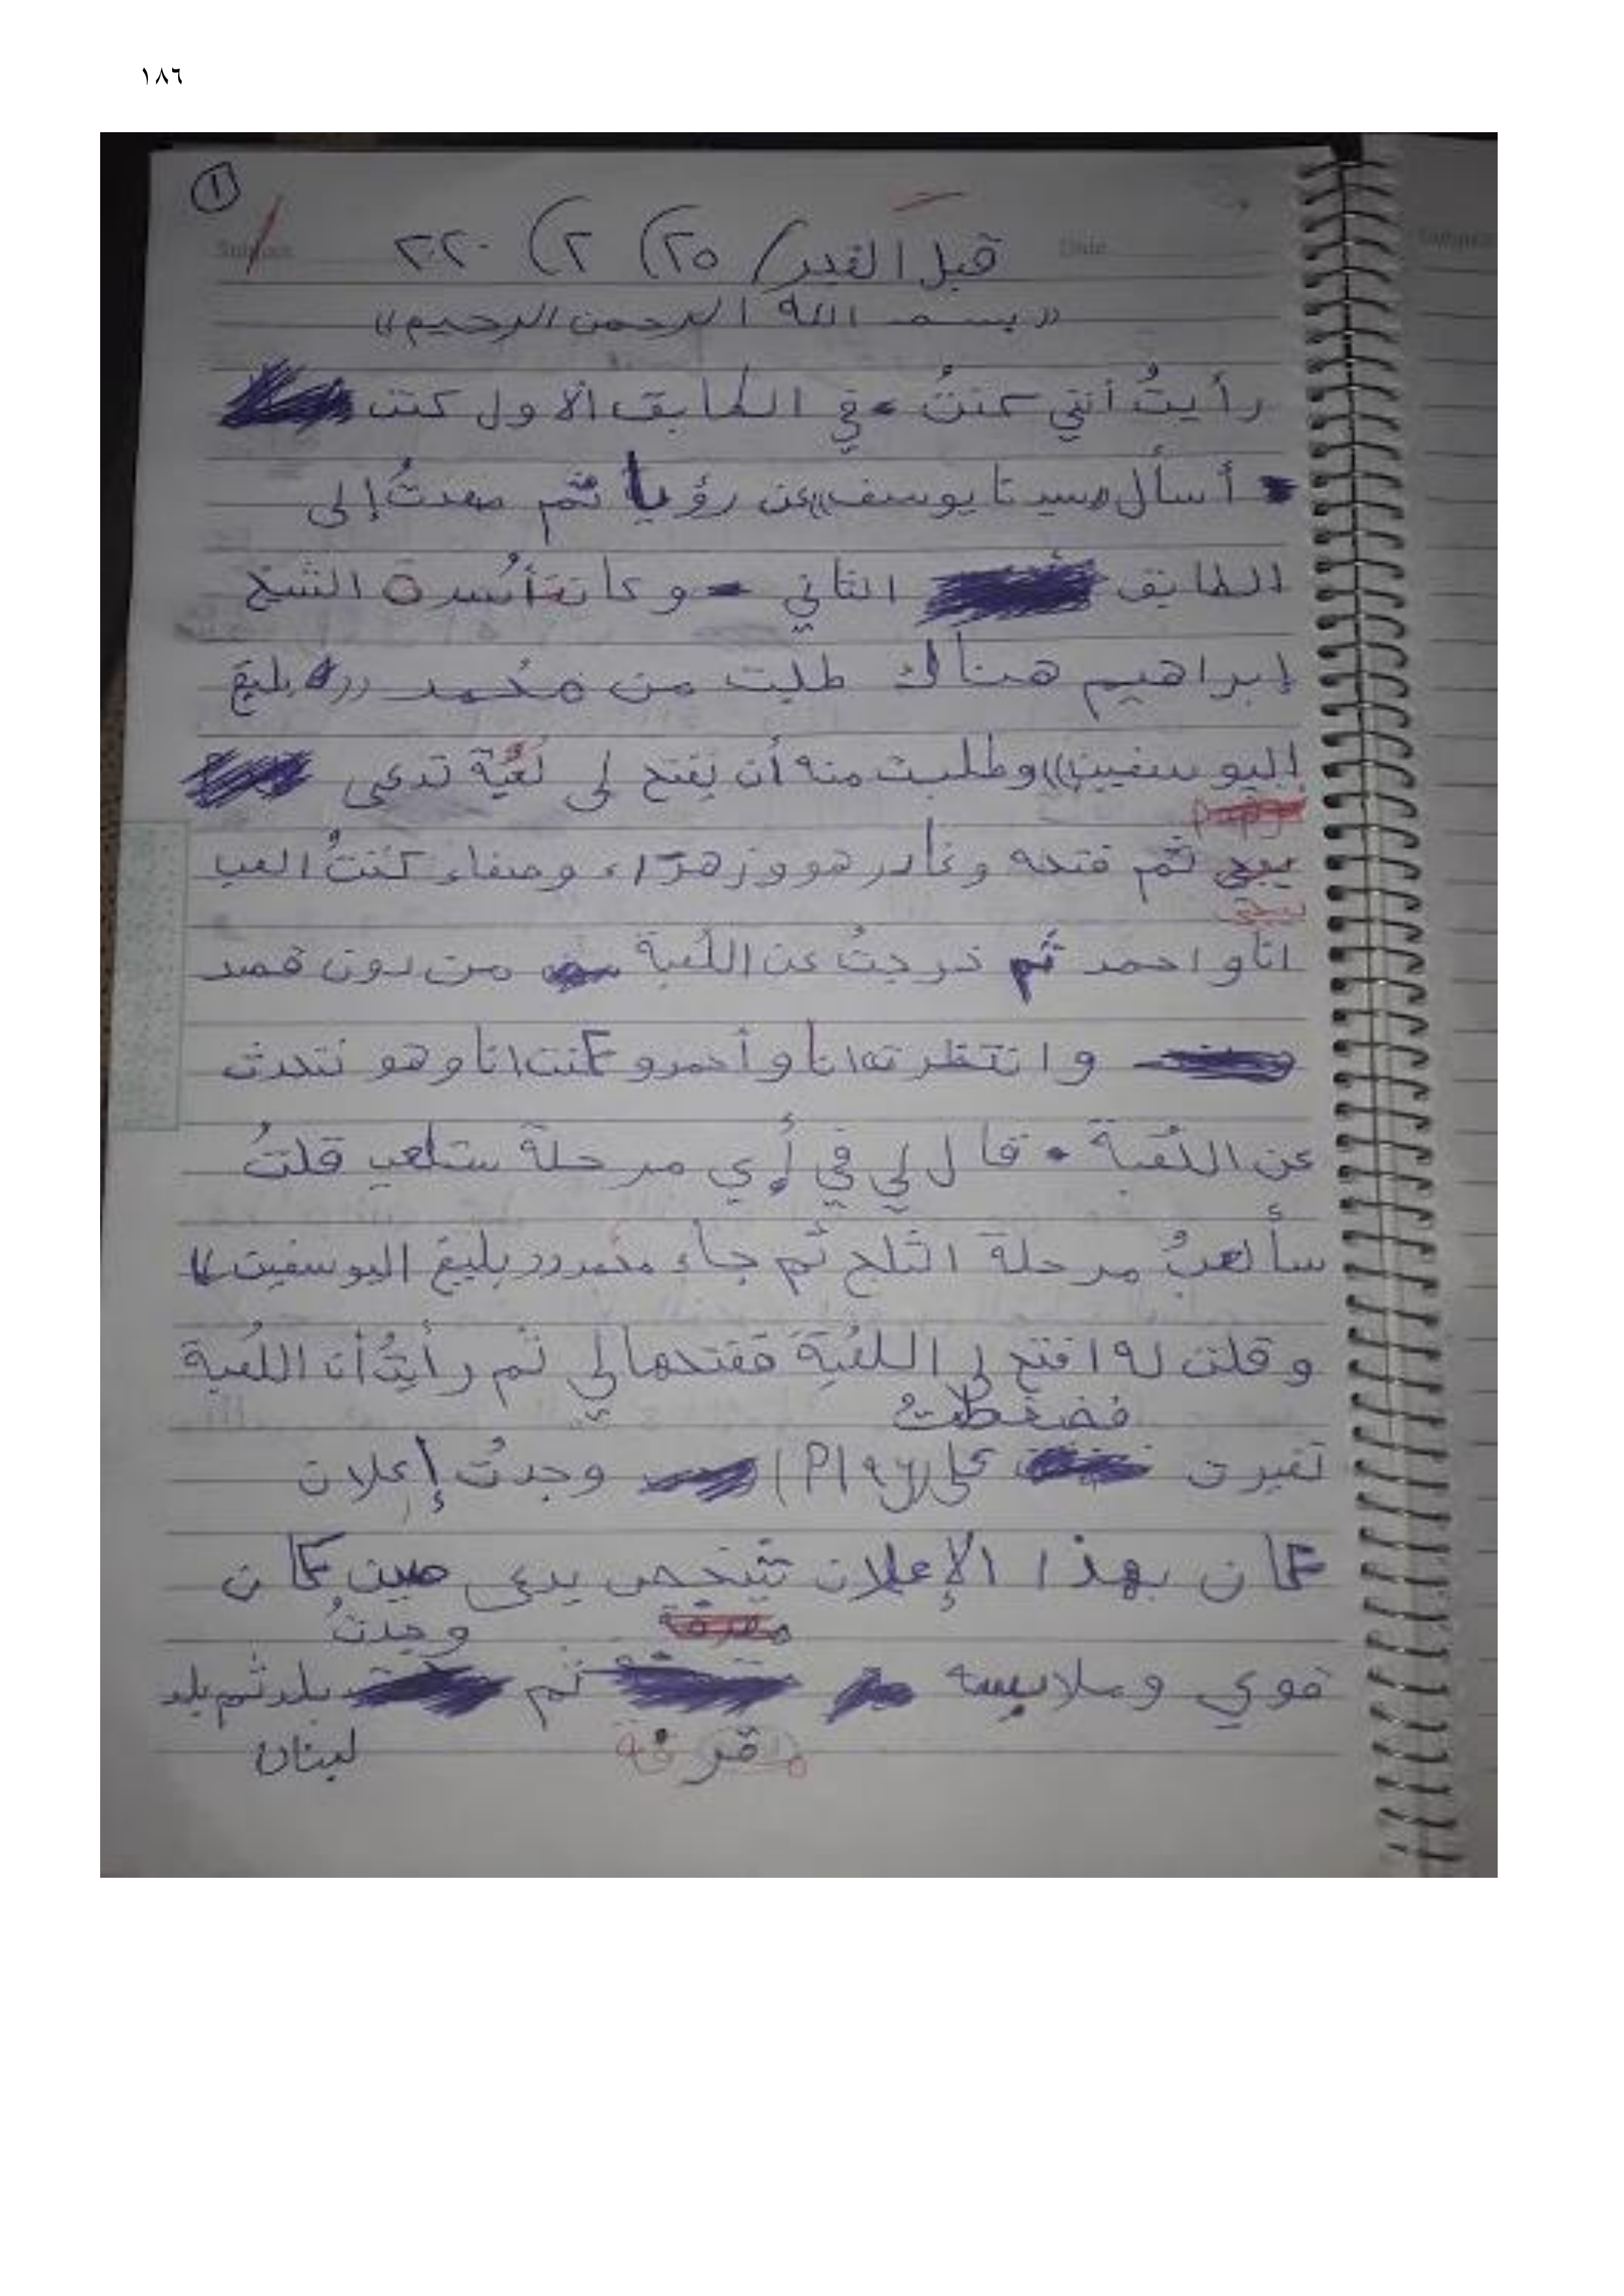 ١٨٦
١
Subject
قبل الفجر/ (٢٥) (٢) ٢٠٢٠
Date
((بسم الله الرحمن الرحيم))
رأيتُ أنني كنتُ في الطابق الأول كنت
أسأل سيدنا يوسف عن رؤيا ثم صعدتُ إلى
الطابق الثاني وكانت أُسرة الشيخ
إبراهيم هناك طلبت من محُمد ((بليغ
اليوسفيين)) وطلبت منه أن يفتح لي لُعبة تدعى
ببجي ثم فتحه وغادر هو وزهرَاء وصفاء كُنتُ العب
انا و احمد ثم خرجتُ عن اللُعبة من دون قصد
وانتظرته انا وأحمد وكنت انا وهو نتحدث
عن اللُعبة • قال لي في أي مرحلة ستلعب قلتُ
سألعبُ مرحلة الثلج ثم جاء محُمد ((بليغ اليوسفين))
وقلت له افتح لي اللُعبة ففتحها لي ثم رأيتُ أن اللُعبة
فضغطتُ
تغيرت على (Play) وجدتُ إعلان
كان بهذا الإعلان شخص يدعى صين كان
وجدتُ
قوي وملابسه ثم بلد ثم بلد
مقرفة لبنان